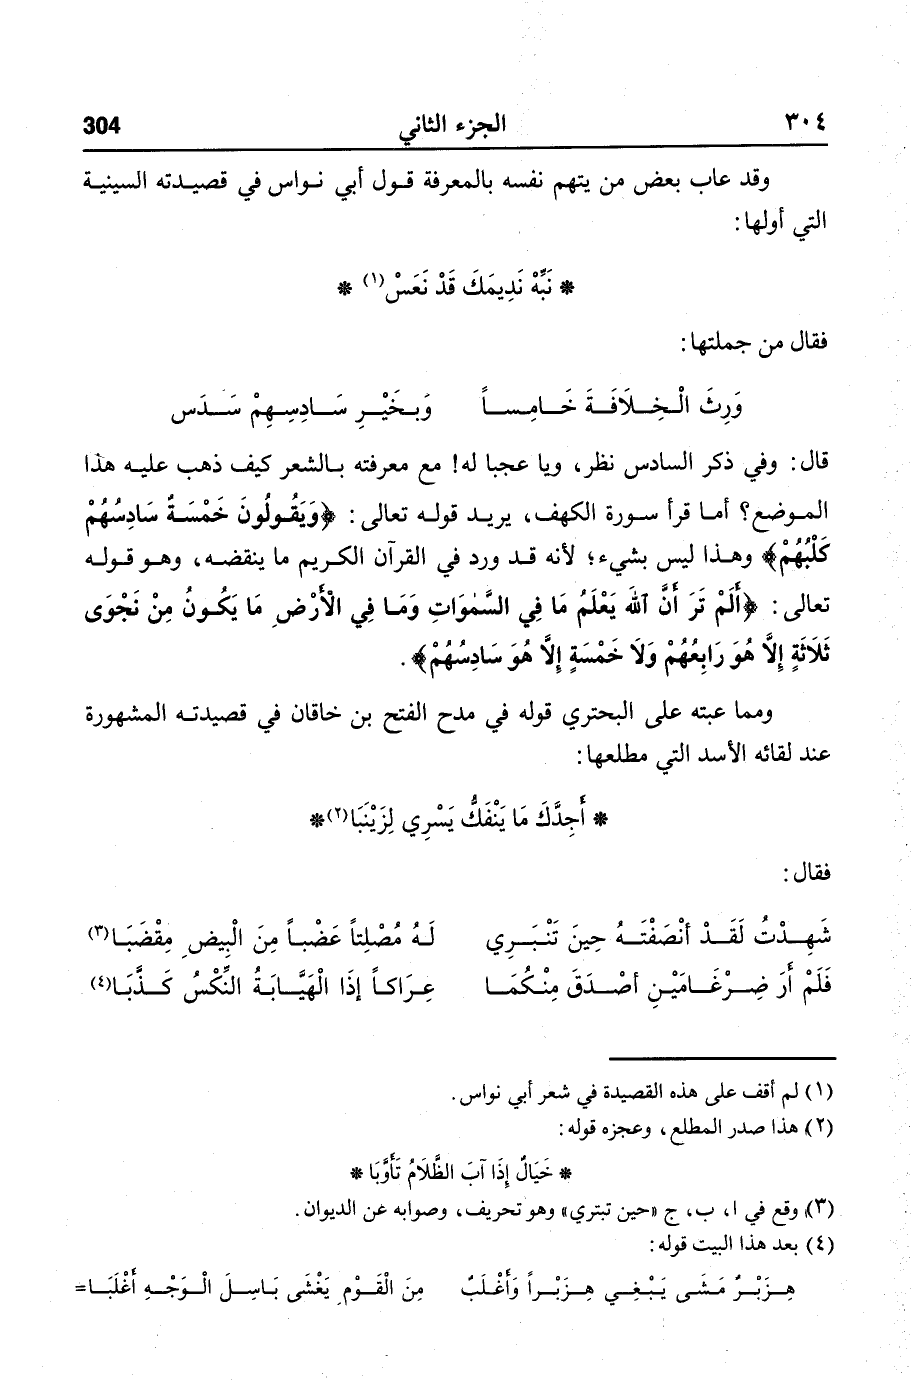 ٣٠٤ الجزء الثاني 304
وقد عاب بعض من يتهم نفسه بالمعرفة قول أبي نواس في قصيدته السينية
التي أولها:
* نَبِّهْ نَدِيمَكَ قَدْ نَعَسْ(١) *
فقال من جملتها:
وَرِثَ الْخِلَافَةَ خَامِساً وَبِخَيْرِ سَادِسِهِمْ سَدَس
قال: وفي ذكر السادس نظر، ويا عجبا له! مع معرفته بالشعر كيف ذهب عليه هذا
الموضع؟ أما قرأ سورة الكهف، يريد قوله تعالى: ﴿وَيَقُولُونَ خَمْسَةٌ سَادِسُهُمْ
كَلْبُهُمْ﴾ وهذا ليس بشيء؛ لأنه قد ورد في القرآن الكريم ما ينقضه، وهو قوله
تعالى: ﴿أَلَمْ تَرَ أَنَّ آللهَ يَعْلَمُ مَا فِي السَّمٰوَاتِ وَمَا فِي الْأَرْضِ مَا يَكُونُ مِنْ نَجْوَى
ثَلَاثَةٍ إِلَّا هُوَ رَابِعُهُمْ وَلَا خَمْسَةٍ إِلَّا هُوَ سَادِسُهُمْ﴾.
ومما عبته على البحتري قوله في مدح الفتح بن خاقان في قصيدته المشهورة
عند لقائه الأسد التي مطلعها:
* أَجِدَّكَ مَا يَنْفَكُّ يَسْرِي لِزَيْنَبَا(٢)*
فقال:
شَهِدْتُ لَقَدْ أَنْصَفْتَهُ حِينَ تَنْبَرِي لَهُ مُصْلِتاً عَضْباً مِنَ الْبِيضِ مِقْضَبَا(٣)
فَلَمْ أَرَ ضِرْغَامَيْنِ أَصْدَقَ مِنْكُمَا عِرَاكاً إِذَا الْهَيَّابَةُ النِّكْسُ كَذَّبَا(٤)
(١) لم أقف على هذه القصيدة في شعر أبي نواس.
(٢) هذا صدر المطلع، وعجزه قوله:
* خَيَالٌ إِذَا آبَ الظَّلَامُ تَأَوَّبَا *
(٣) وقع في ا، ب، ج «حين تبتري» وهو تحريف، وصوابه عن الديوان.
(٤) بعد هذا البيت قوله:
هِزَبْرٌ مَشَى يَبْغِي هِزَبْراً وَأَغْلَبٌ مِنَ الْقَوْمِ يَغْشَى بَاسِلَ الْوَجْهِ أَغْلَبَا=